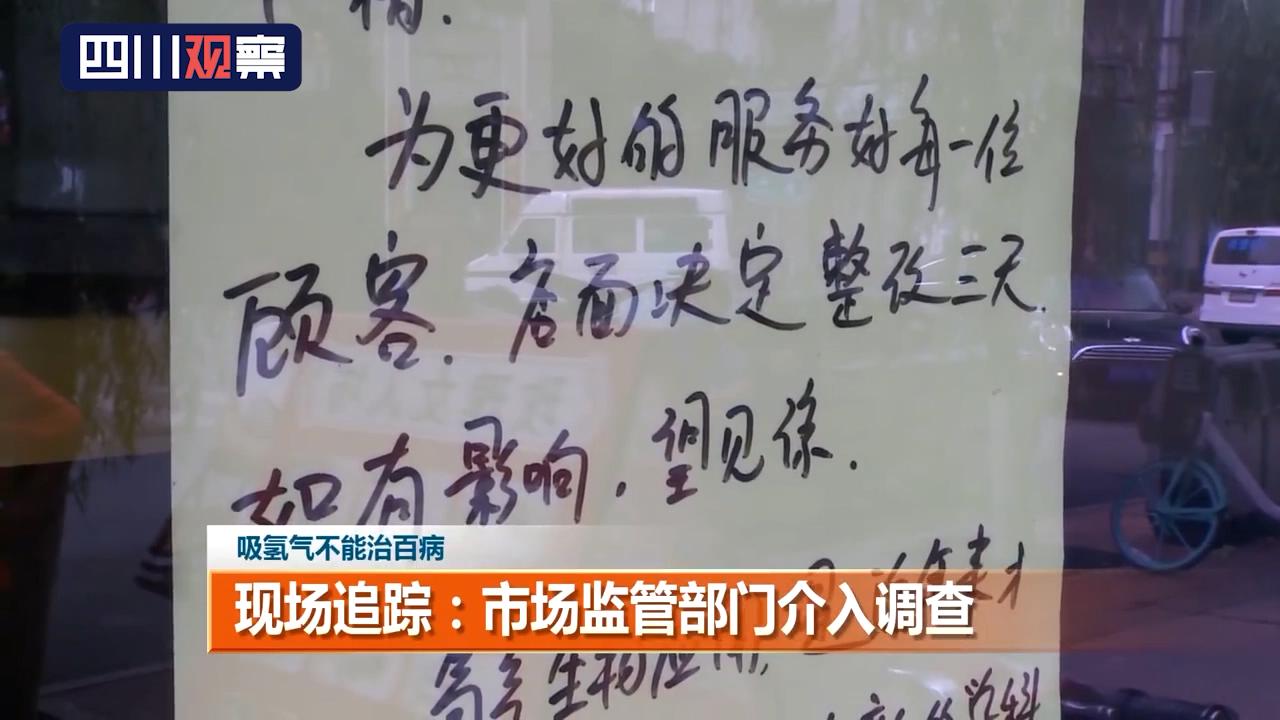 四川观察
为更好的服务好每一位
顾客.店面决定整改三天.
如有影响.望见谅.
吸氢气不能治百病
现场追踪：市场监管部门介入调查